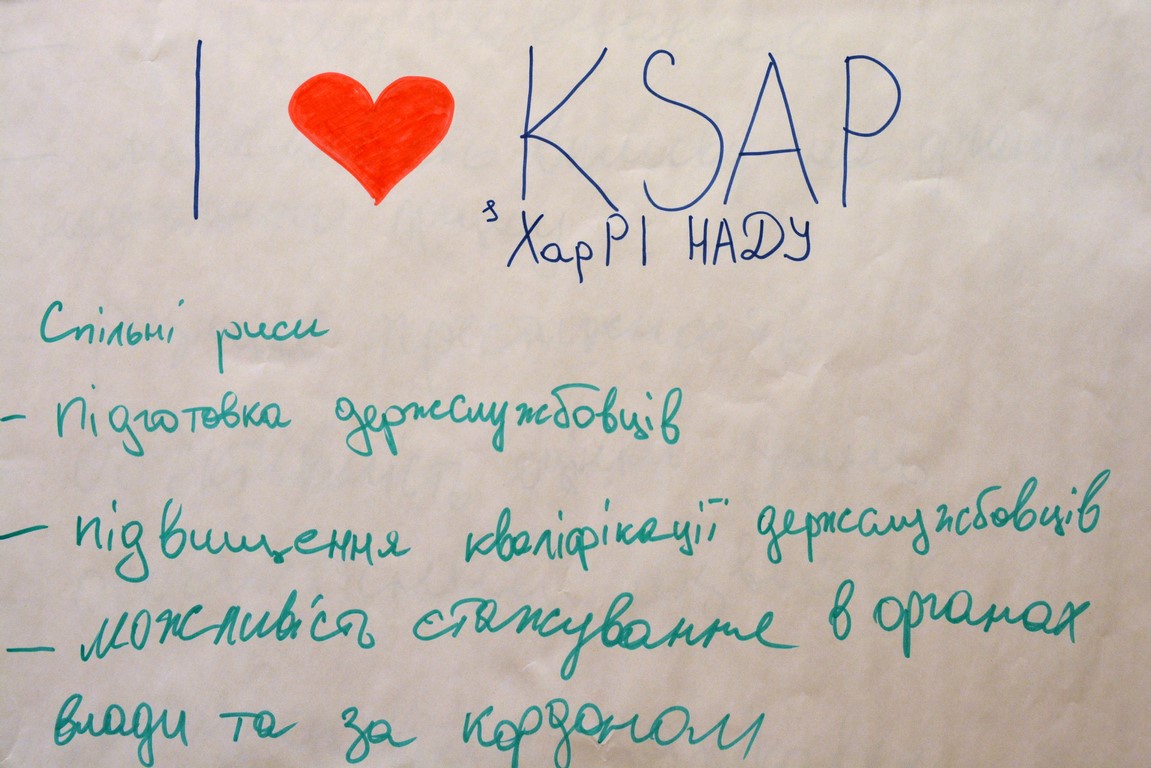 I ❤ KSAP
з ХарРІ НАДУ
Спільні риси
- підготовка держслужбовців
- підвищення кваліфікації держслужбовців
- можливість стажування в органах
влади та за кордоном